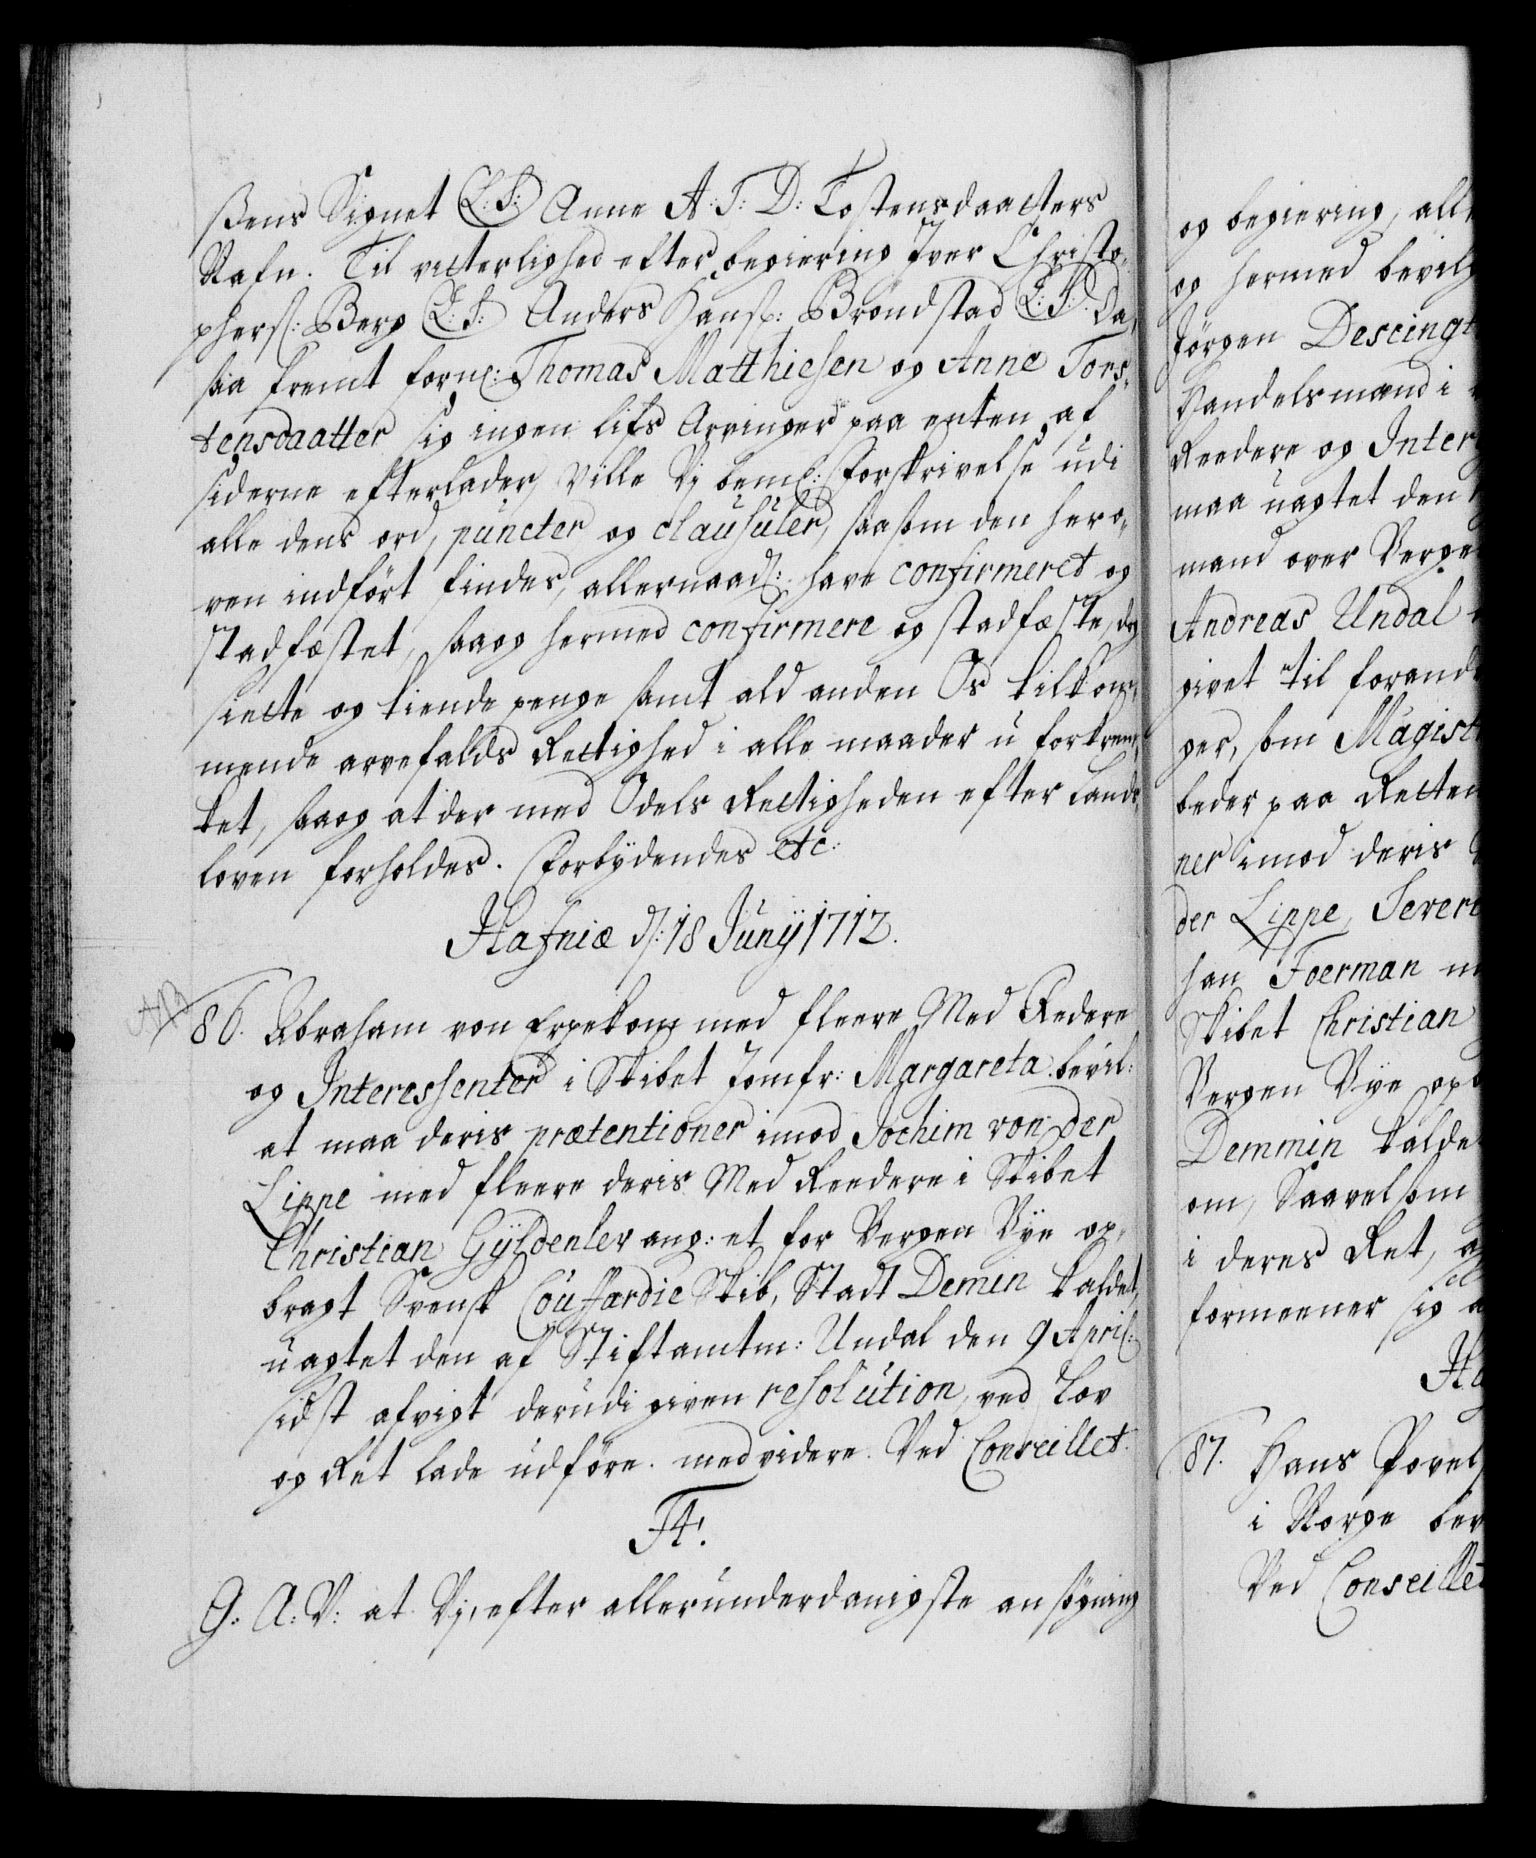 ßens Signet L:S: Anne A: T: D: Tostensdaatters
Nafn. Til vitterlighed efter begiering Iver Christo-
phers: Berg L:S: Anders Hans: Brøndstad L:S: Da,
saa fremt forne: Thomas Matthiesen og Anne Tors-
tensdaatter sig ingen lifs Arvinger paa enten af
siderne efterlader, Ville Vj bemte: Forskrivelse udi
alle dens ord, puncter og clausuler, saasom den hero-
ven indført findes, allernaadt: have confirmeret og
stadfæstet, saa og hermed confirmere og stadfæste, dog
siette og tiende penge samt ald anden Os tilkom-
mende arvefalds Rettighed i alle maader u forkren-
ket, saa og at der med Odels Rettigheden efter Lands
loven forholdes. Forbydendes etc:
Hafniæ d: 18 Junij 1712.
86. Abraham von Erpekom med fleere Med Redere
og Interessenter i Skibet Jomfr: Margareta bevil:
at maa deris prætentioner imod Jochim von der
Lippe med fleere deris Med Reedere i Skibet
Christian Gyldenlev ang: et for Bergen Bye op-
bragt Svensk Couffardie Skib, Stadt Demin kaldet,
uagtet den af Stiftamtm: Undal den 9 April:
sidst afvigt derudi given resolution, ved Lov
og Ret lade udføre. med videre. Ved Conseillet.
F4!
G: A: V: at Vj, efter allerunderdanigste ansøgning
og begiering, all
og hermed bevilg
Jørgen Descingt
Handelsmand i
Reedere og Inter
maa uagtet den
mand over Berge
Andreas Undal
givet til forand
ger, som Magist
beder paa Retten
ner imod deris
der Lippe, Severi
han Foerman m
Skibet Christian
Bergen Bye op
Demmin kalde
om, Saavelsom
i deres Ret, a
formeener sig a
Ha
87. Hans Povel
i Norge bev
Ved Conseillet